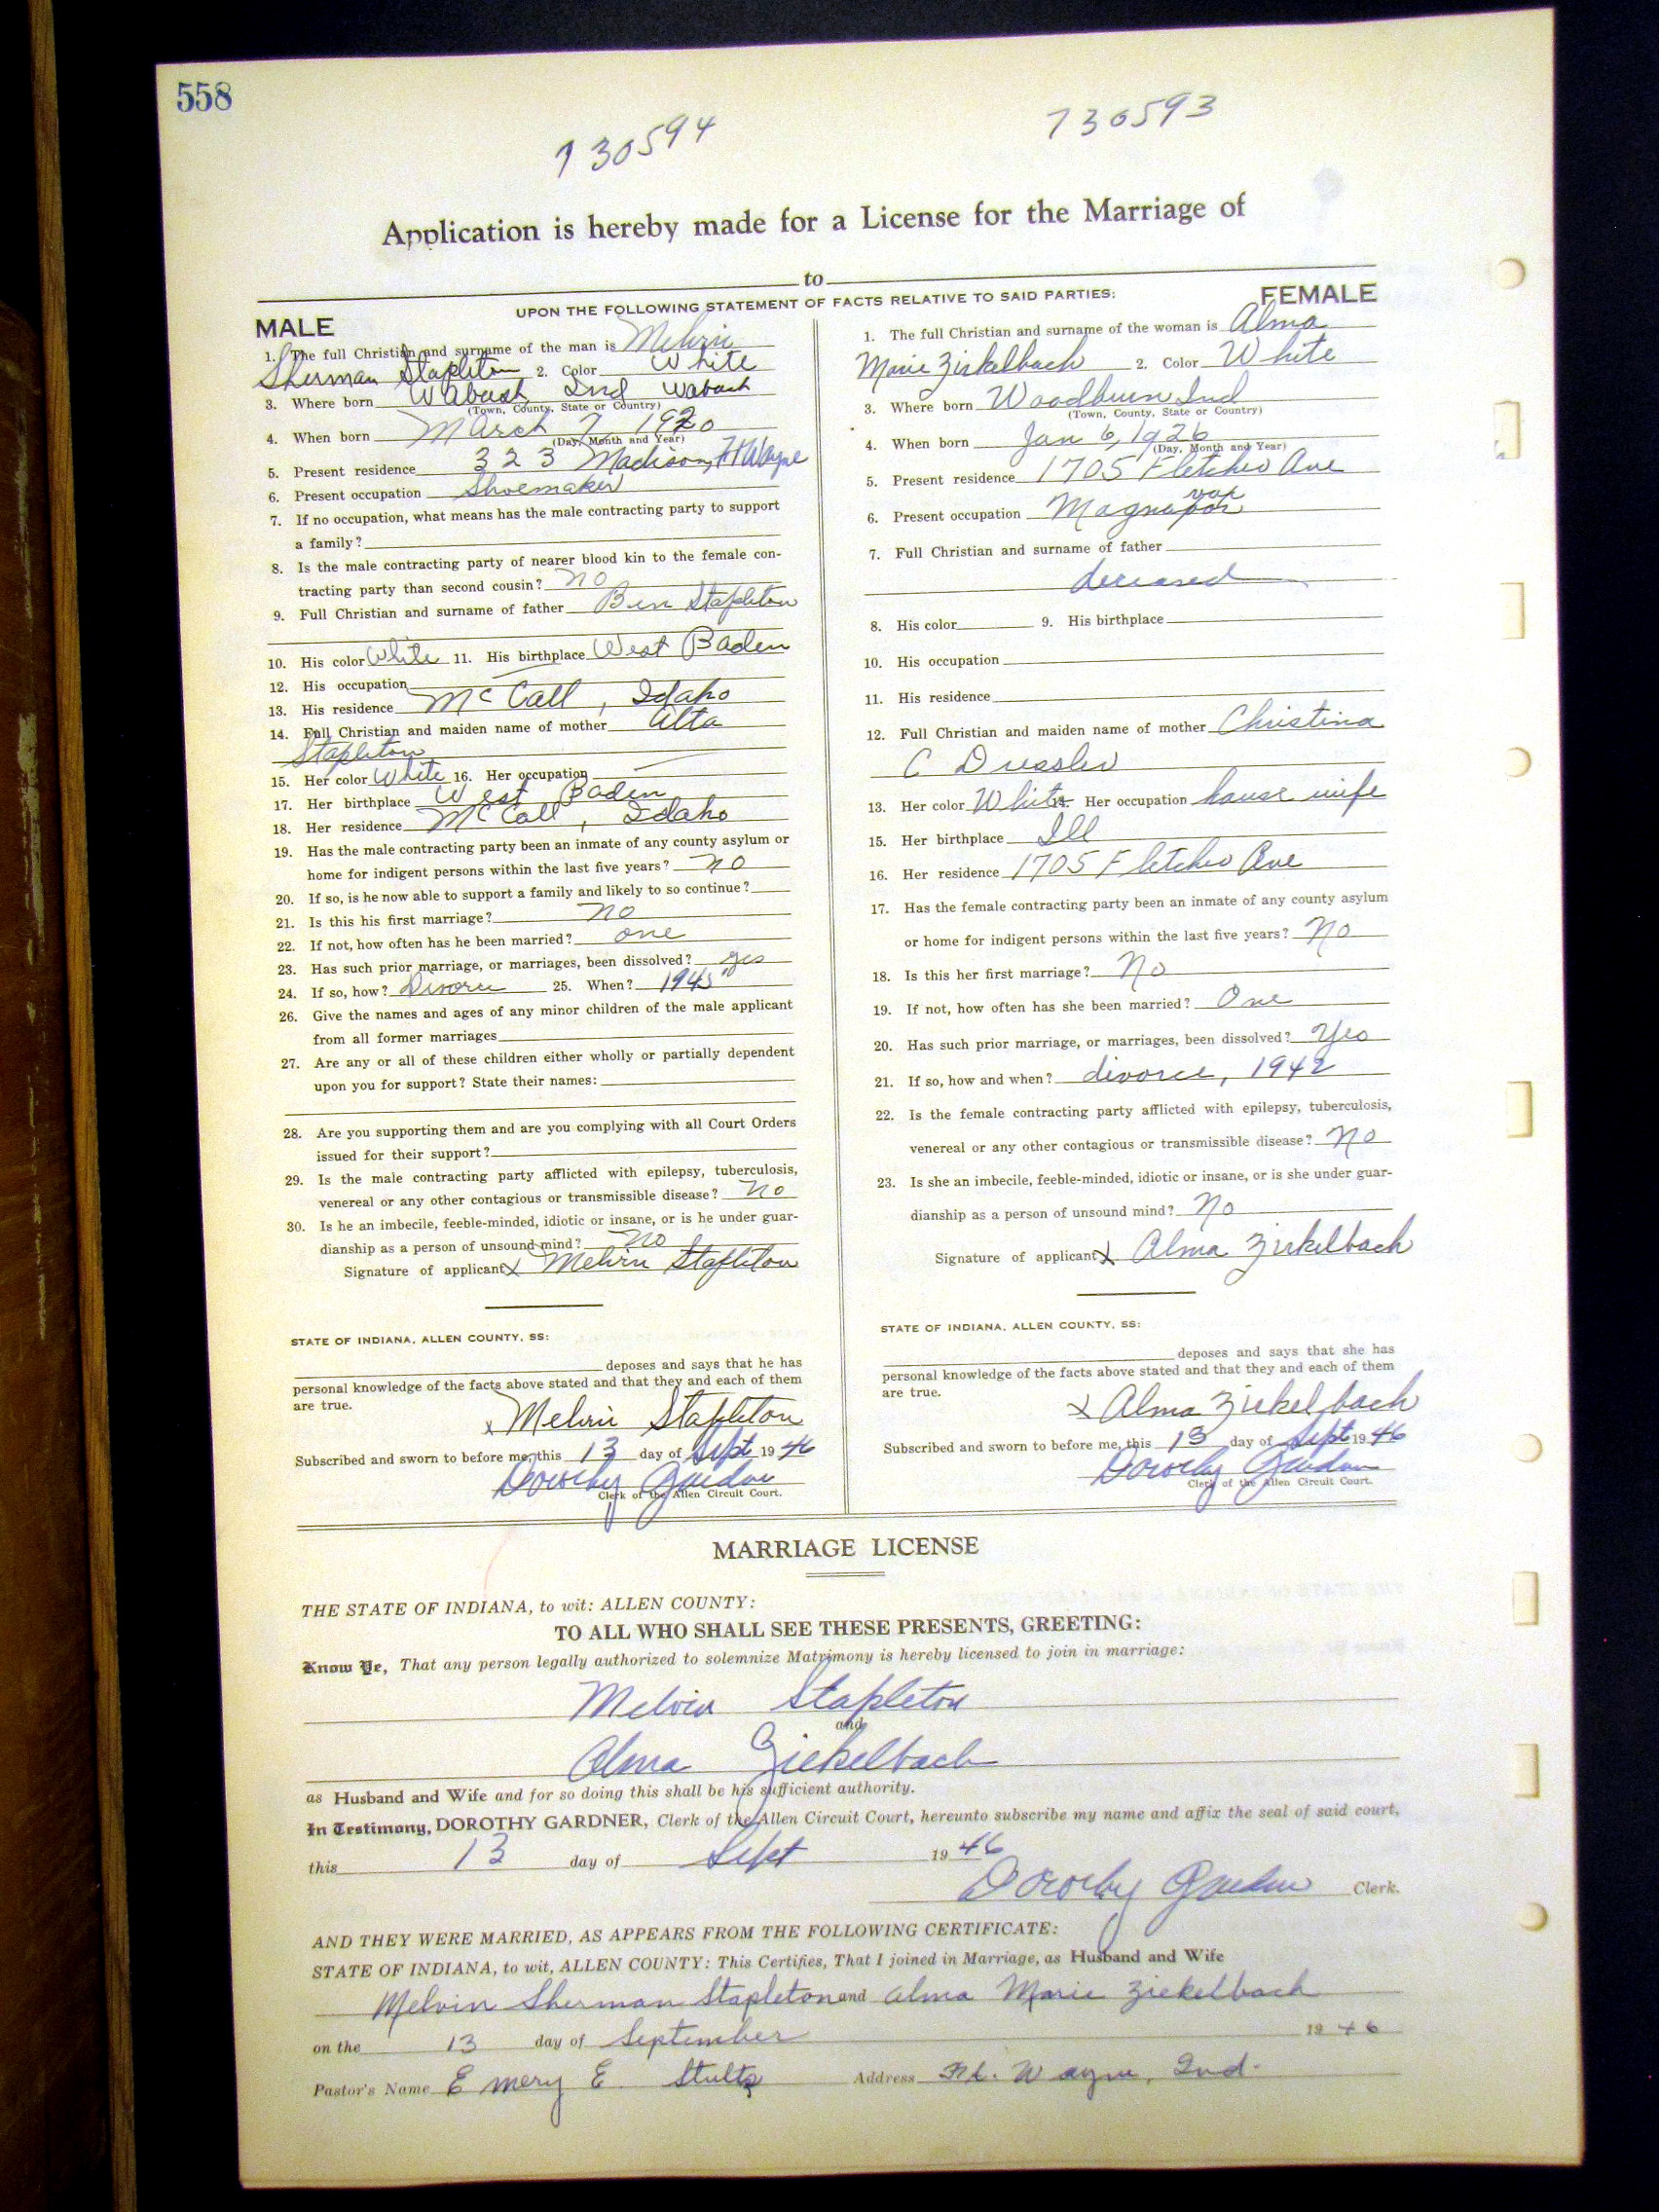 558
730594
730593
Application is hereby made for a License for the Marriage of
to
UPON THE FOLLOWING STATEMENT OF FACTS RELATIVE TO SAID PARTIES:
MALE
1. The full Christian and surname of the man is Melvin
Sherman Stapleton 2. Color White
3. Where born Wabash, Ind Wabash
(Town, County, State or Country)
4. When born March 7, 1920
(Day, Month and Year)
5. Present residence 323 Madison, Ft Wayne
6. Present occupation Shoemaker
7. If no occupation, what means has the male contracting party to support
a family?
8. Is the male contracting party of nearer blood kin to the female con-
tracting party than second cousin? no
9. Full Christian and surname of father Ben Stapleton
10. His color White 11. His birthplace West Baden
12. His occupation
13. His residence McCall, Idaho
14. Full Christian and maiden name of mother Alta
Stapleton
15. Her color White 16. Her occupation
17. Her birthplace West Baden
18. Her residence McCall, Idaho
19. Has the male contracting party been an inmate of any county asylum or
home for indigent persons within the last five years? no
20. If so, is he now able to support a family and likely to so continue?
21. Is this his first marriage? no
22. If not, how often has he been married? one
23. Has such prior marriage, or marriages, been dissolved? yes
24. If so, how? Divorce 25. When? 1945
26. Give the names and ages of any minor children of the male applicant
from all former marriages
27. Are any or all of these children either wholly or partially dependent
upon you for support? State their names:
28. Are you supporting them and are you complying with all Court Orders
issued for their support?
29. Is the male contracting party afflicted with epilepsy, tuberculosis,
venereal or any other contagious or transmissible disease? no
30. Is he an imbecile, feeble-minded, idiotic or insane, or is he under guar-
dianship as a person of unsound mind? no
Signature of applicant x Melvin Stapleton
STATE OF INDIANA, ALLEN COUNTY, SS:
deposes and says that he has
personal knowledge of the facts above stated and that they and each of them
are true.
x Melvin Stapleton
Subscribed and sworn to before me, this 13 day of Sept 1946
Dorothy Gardner
Clerk of the Allen Circuit Court.
FEMALE
1. The full Christian and surname of the woman is Alma
Marie Zirkelbach 2. Color White
3. Where born Woodburn Ind
(Town, County, State or Country)
4. When born Jan 6, 1926
(Day, Month and Year)
5. Present residence 1705 Fletcher Ave
6. Present occupation Magnavox
7. Full Christian and surname of father
deceased
8. His color 9. His birthplace
10. His occupation
11. His residence
12. Full Christian and maiden name of mother Christina
C Dressler
13. Her color White 14. Her occupation house wife
15. Her birthplace Ill
16. Her residence 1705 Fletcher Ave
17. Has the female contracting party been an inmate of any county asylum
or home for indigent persons within the last five years? No
18. Is this her first marriage? No
19. If not, how often has she been married? One
20. Has such prior marriage, or marriages, been dissolved? Yes
21. If so, how and when? divorce, 1942
22. Is the female contracting party afflicted with epilepsy, tuberculosis,
venereal or any other contagious or transmissible disease? No
23. Is she an imbecile, feeble-minded, idiotic or insane, or is she under guar-
dianship as a person of unsound mind? No
Signature of applicant x Alma Zirkelbach
STATE OF INDIANA, ALLEN COUNTY, SS:
deposes and says that she has
personal knowledge of the facts above stated and that they and each of them
are true.
x Alma Zirkelbach
Subscribed and sworn to before me, this 13 day of Sept 1946
Dorothy Gardner
Clerk of the Allen Circuit Court.
MARRIAGE LICENSE
THE STATE OF INDIANA, to wit: ALLEN COUNTY:
TO ALL WHO SHALL SEE THESE PRESENTS, GREETING:
Know Ye, That any person legally authorized to solemnize Matrimony is hereby licensed to join in marriage:
Melvin Stapleton
and
Alma Zirkelbach
as Husband and Wife and for so doing this shall be his sufficient authority.
In Testimony, DOROTHY GARDNER, Clerk of the Allen Circuit Court, hereunto subscribe my name and affix the seal of said court,
this 13 day of Sept 1946
Dorothy Gardner Clerk.
AND THEY WERE MARRIED, AS APPEARS FROM THE FOLLOWING CERTIFICATE:
STATE OF INDIANA, to wit, ALLEN COUNTY: This Certifies, That I joined in Marriage, as Husband and Wife
Melvin Sherman Stapleton and Alma Marie Zirkelbach
on the 13 day of September 1946
Pastor's Name Emery E. Stults Address Ft. Wayne, Ind.